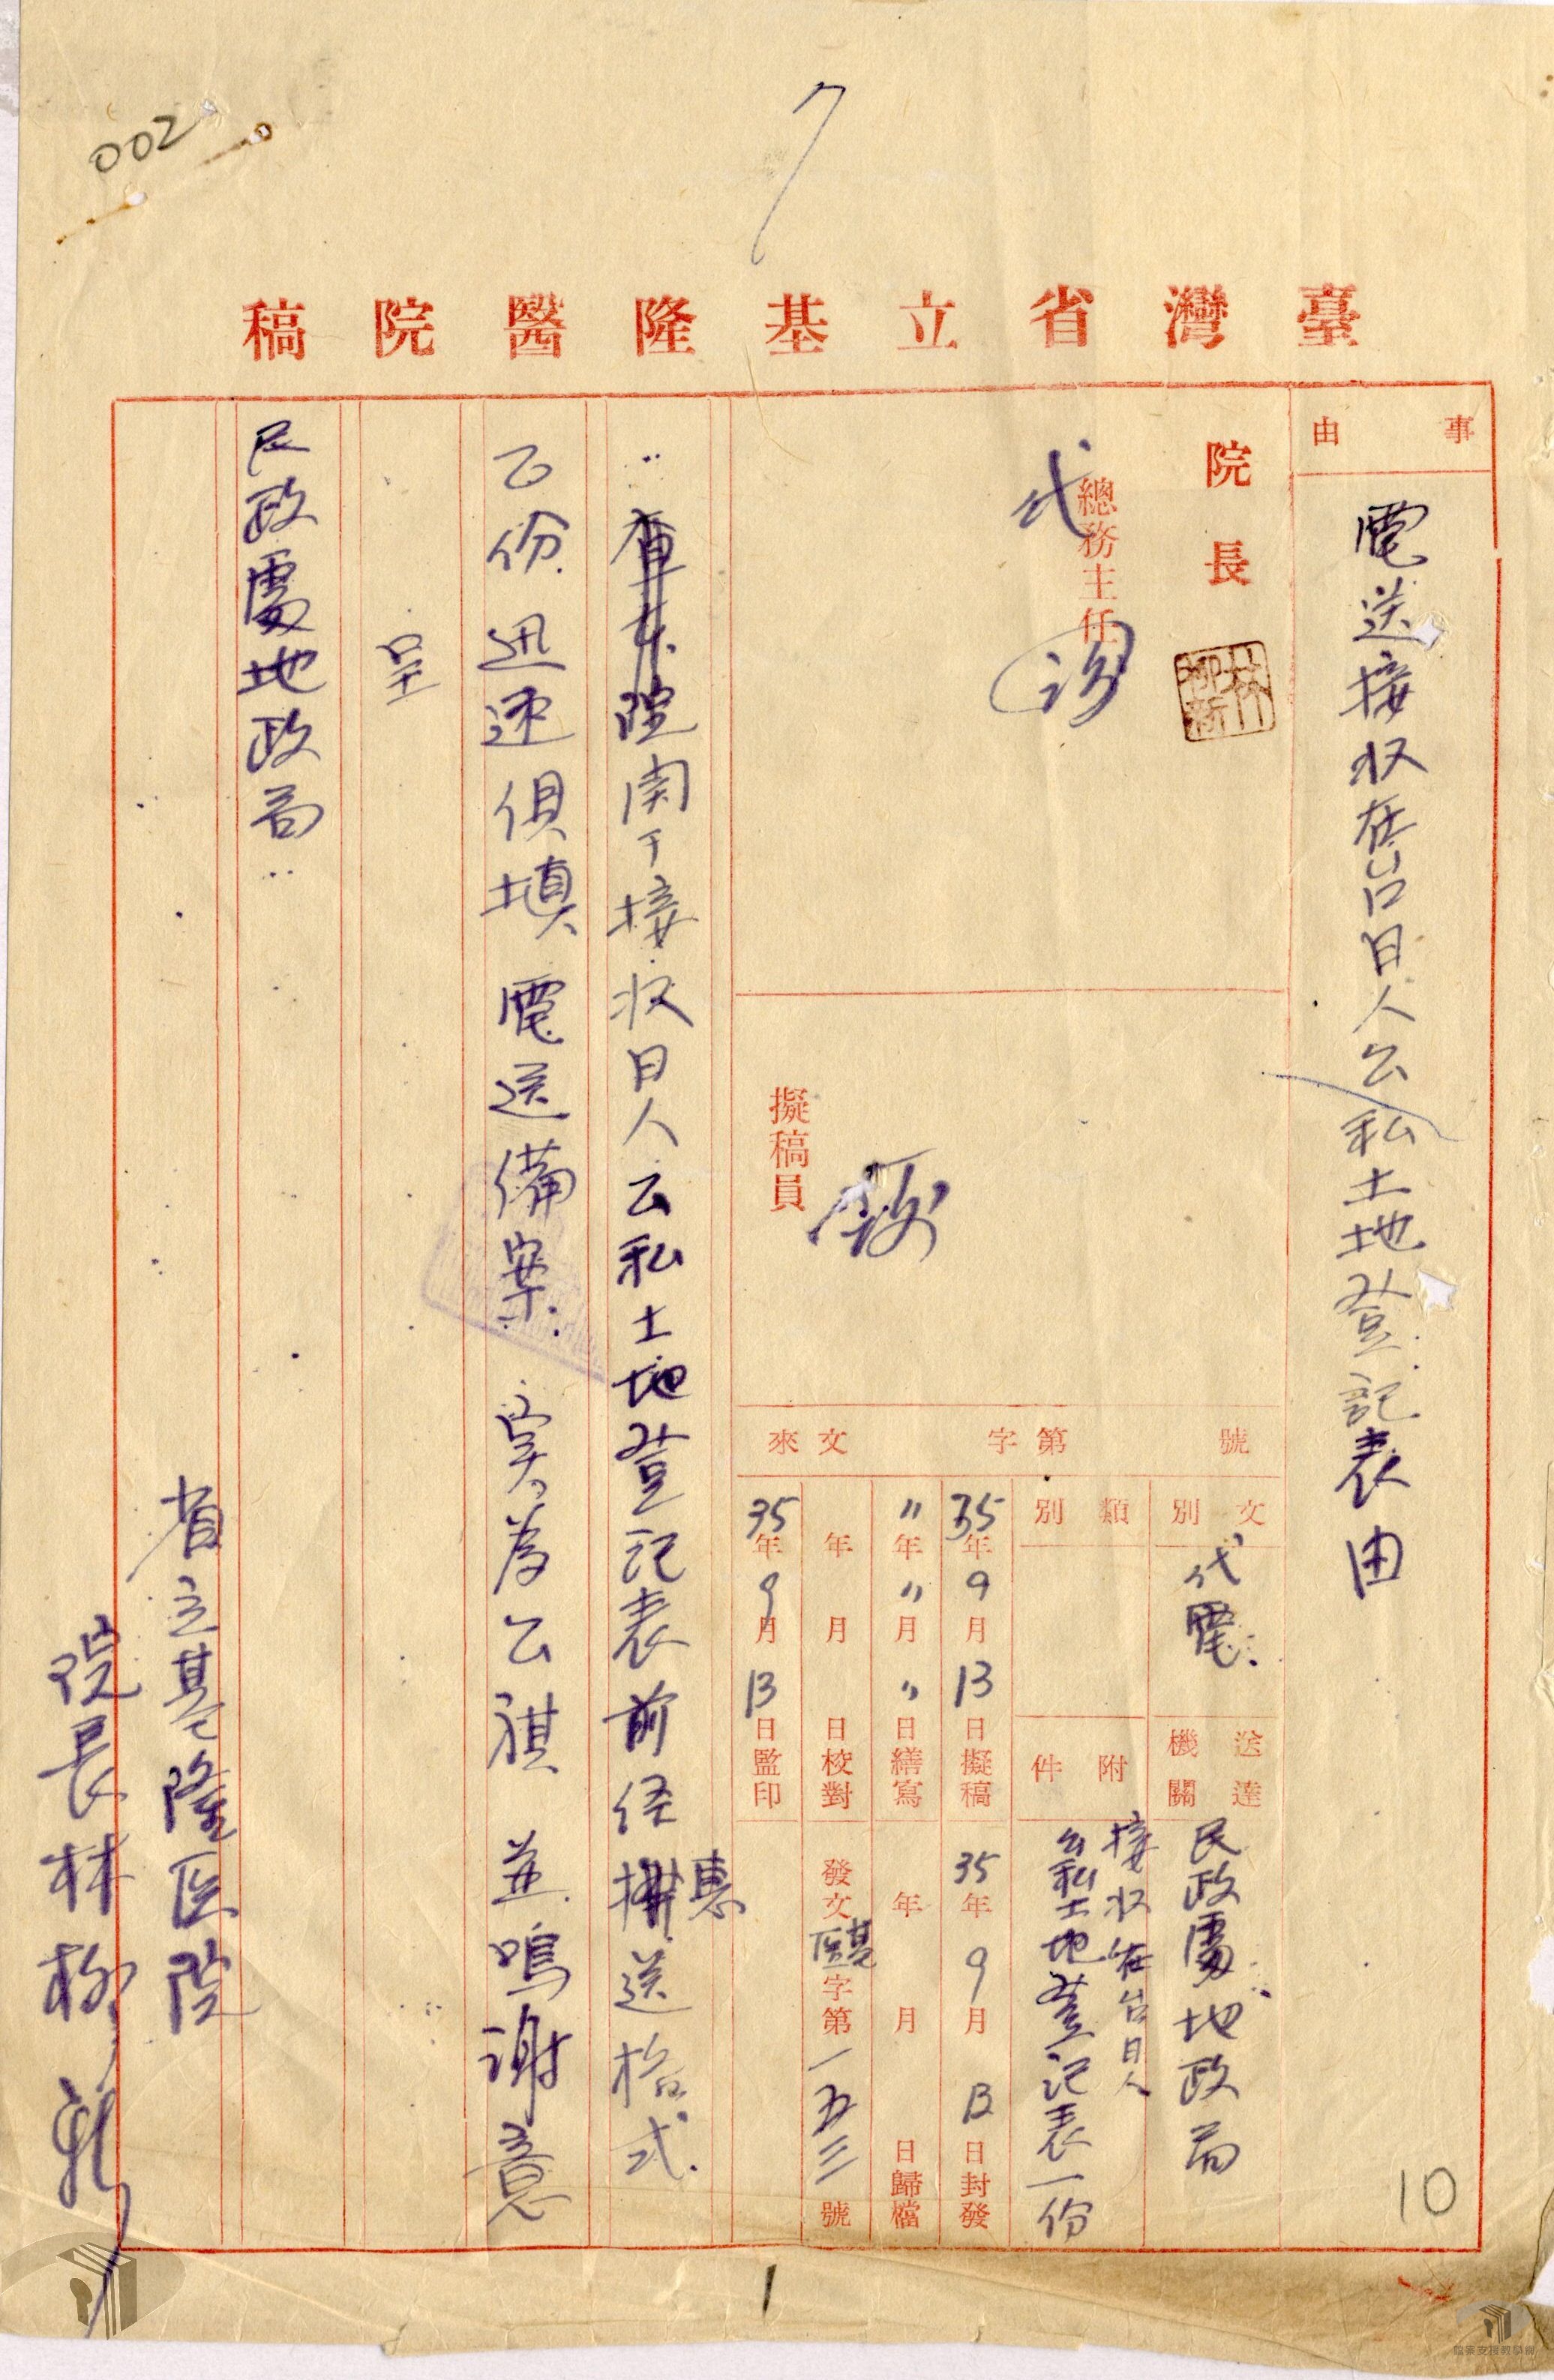 002
7
臺灣省立基隆醫院稿
事由
電送接收在台日人公私土地登記表由
院長
林柳新
總務主任
代
擬稿員
來文 字第 號
文別
代電
送達機關
民政處地政局
類別
附件
接收在台日人
公私土地登記表一份
35年9月13日擬稿
35年9月13日封發
〃年〃月〃日繕寫
年 月 日歸檔
年 月 日校對
發文基醫字第一五三號
35年9月13日監印
查本院關于接收日人公私土地登記表前經惠送格式
乙份迅速俱填電送備案 實為公祺 並鳴謝意
呈
民政處地政局
省立基隆医院
院長林柳新
10
1
檔案支援教學網